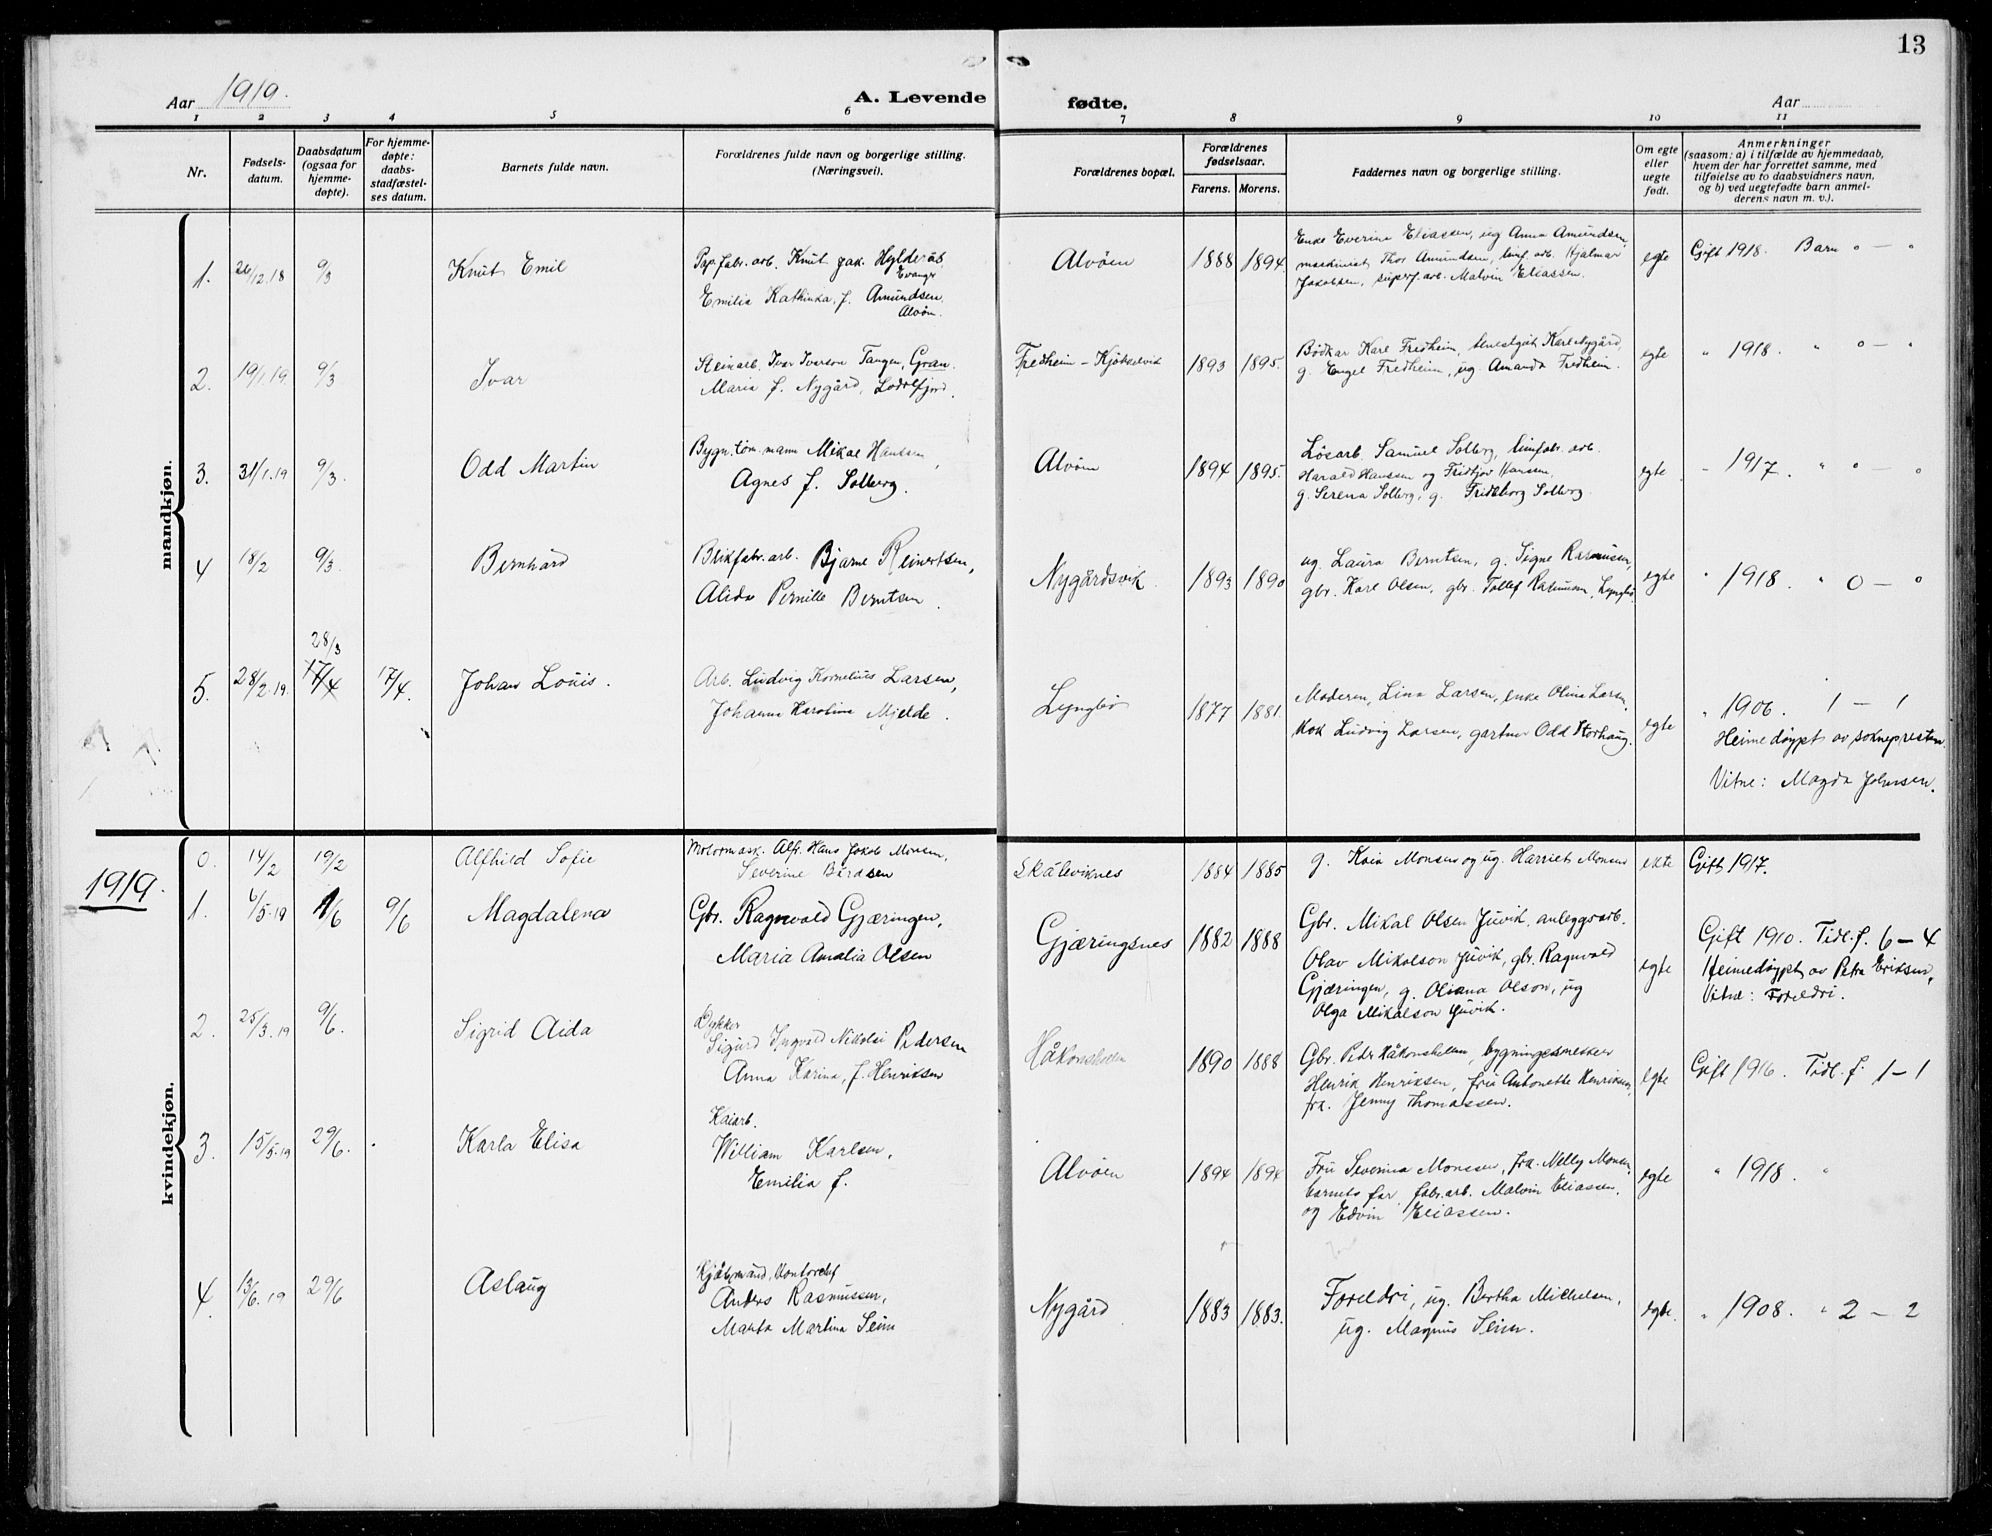 13
Aar 1919.
A. Levende fødte.
Aar
1 2 3 4 5 6 7 8 9 10 11
Nr.
Fødsels-
datum.
Daabsdatum
(ogsaa for
hjemme-
døpte).
For hjemme-
døpte:
daabs-
stadfæstel-
ses datum.
Barnets fulde navn.
Forældrenes fulde navn og borgerlige stilling.
(Næringsvei).
Forældrenes bopæl.
Forældrenes
fødselsaar.
Farens. Morens.
Faddernes navn og borgerlige stilling.
Om egte
eller
uegte
født.
Anmerkninger
(saasom: a) i tilfælde av hjemmedaab,
hvem der har forrettet samme, med
tilføielse av to daabsvidners navn,
og b) ved uegtefødte barn anmel-
derens navn m. v.).
mandkjøn.
1. 26/12.18 9/3 Knut Emil
Pap.fabr.arb. Knut Jak. Hylderås
Evanger
Emilia Kathinka, f. Amundsen
Alvøn.
Alvöen 1888 1894
Enke Everina Eliassen, ug Anna Amundsen,
maskinist Thor Amundsen, arb. Hjalmar
Jakobsen, arb. Malvin Eliassen.
egte Gift 1918. Barn o — o
2. 19/1.19 9/3 Ivar
Steinarb. Ivar Ivarson Tangen, Gran.
Maria f. Nygård,
Fredheim – Kjökkelvik 1893 1895.
Bødkar Karl Fredheim, Karl Nygård,
g. Engel Fredheim, ug. Amanda Fredheim.
egte " 1918. " o — o
3. 31/1.19 9/3. Odd Martin
Bygn.töm.mann Mikal Hansen,
Agnes f. Solberg.
Alvöen 1894 1895.
Lösarb. Samuel Solberg, arb.
Harald Hanssen og Fridtjov Hansen,
g. Serena Solberg, g. Fridtborg Solberg
egte " 1917. " o — o
4 18/2 9/3. Bernhard
Blikfabr.arb. Bjarne Reinertsen,
Alida Pernille Berntsen.
Nygårdsvik. 1893 1890
ug. Laura Berntsen, g. Signe Rasmusen,
gbr. Karl Olsen, gbr. Tollef Rasmusen, Lyngbö.
egte " 1918. " 0 — o
28/3
5. 28/2.19. 17/4 17/4. Johan Louis.
Arb. Ludvig Kornelius Larsen,
Johanna Karoline Mjelde.
Lyngbö 1877 1881.
Moderen, Lina Larsen, enke Olina Larsen,
kok Ludvig Larsen, gartner Odd Storhaug.
egte " 1906. 1 — 1
Heimedøypt av soknepresten
Vitne: Magda Johnsen.
1919.
kvindekjøn.
0. 14/2 19/2 Alfhild Sofie
Motormask. Alfr. Hans Jakob Monsen,
Severine Birdsen
Skåleviknes 1884 1885
g. Kaia Monsen og ug. Harriet Monsen
ekte Gift 1917.
1. 6/5.19 1/6 9/6 Magdalena
Gbr. Ragnvald Gjæringen,
Maria Amalia Olsen
Gjæringsnes 1882 1888
Gbr. Mikal Olsen Juvik, anleggsarb.
Olav Mikalson Juvik, gbr. Ragnvald
Gjæringen, g. Oliana Olson, ug
Olga Mikalson Juvik.
egte Gift 1910. Tidl.f. 6 – 4
Heimedöypt av Petra Eriksen,
Vitne: Foreldri.
2. 25/3.19 9/6. Sigrid Aida
Dykker
Sigurd Ingvald Nikolai Pedersen
Anna Karina, f. Henriksen
Håkonshellen 1890 1888
Gbr. Peder Håkonshellen, bygningssnekker
Henrik Henriksen, fru Antonette Henriksen,
frk. Jenny Thomassen.
egte Gift 1916. Tidl.f. 1 – 1
3. 15/5.19 29/6. Karla Elisa
Kaiarb.
William Karlsen,
Emilia f.
Alvöen 1894 1894
Fru Severina Monssen, frk. Nelly Monsen,
barnets far, fabr.arb. Malvin Eliassen,
og Edvin Eliassen.
egte " 1918. "
4. 13/6.19 29/6 Aslaug
Kjøbmand,
Anders Rasmussen,
Marta Martina Seim
Nygård 1883 1883.
Foreldri, ug. Bertha Michelsen,
ug. Magnus Seim.
egte. " 1908. " 2 – 2